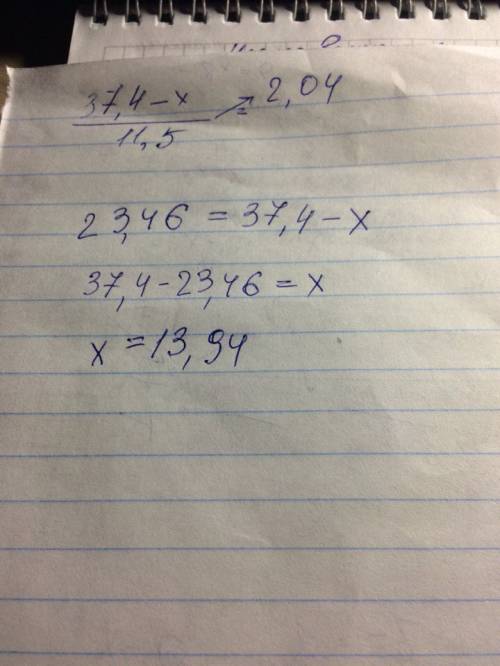 37,4 - x
———— = 2,04
11,5
23,46 = 37,4 - x
37,4 - 23,46 = x
x = 13,94